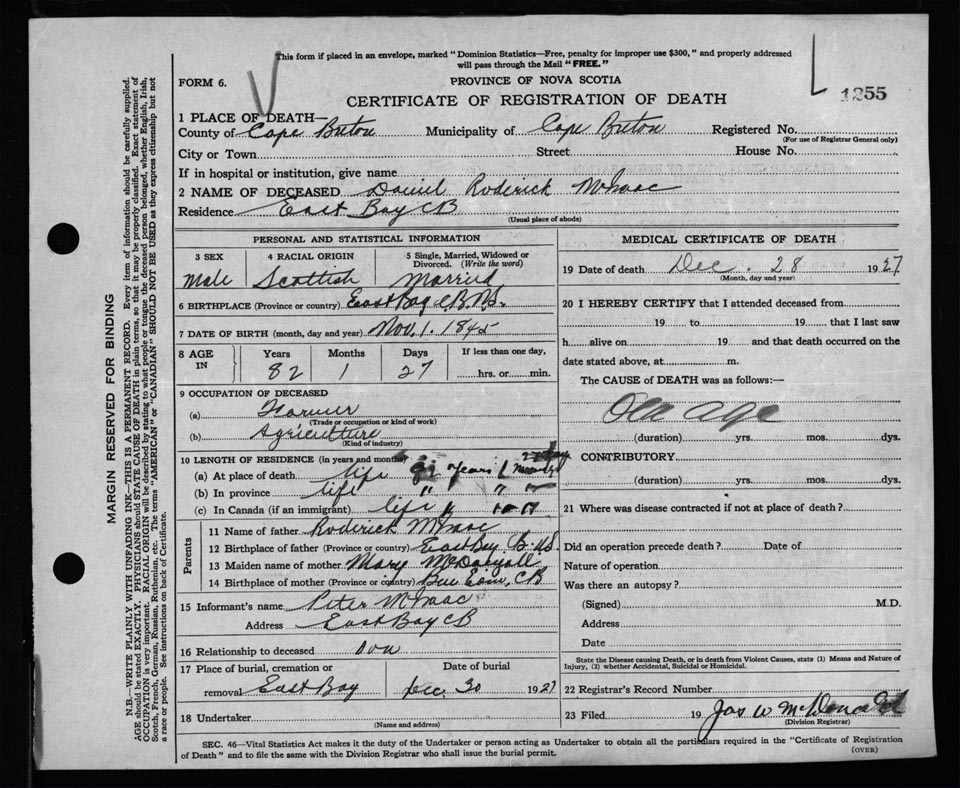 This form if placed in an envelope, marked "Dominion Statistics—Free, penalty for improper use $300," and properly addressed
will pass through the Mail "FREE."
FORM 6.
PROVINCE OF NOVA SCOTIA
CERTIFICATE OF REGISTRATION OF DEATH
1255
1 PLACE OF DEATH—
County of Cape Breton Municipality of Cape Breton Registered No.
(For use of Registrar General only)
City or Town Street House No.
If in hospital or institution, give name
2 NAME OF DECEASED Daniel Roderick McIsaac
Residence East Bay CB
(Usual place of abode)
PERSONAL AND STATISTICAL INFORMATION
3 SEX 4 RACIAL ORIGIN 5 Single, Married, Widowed or Divorced. (Write the word)
Male Scottish Married
6 BIRTHPLACE (Province or country) East Bay C.B. N.S.
7 DATE OF BIRTH (month, day and year) Nov. 1. 1845
8 AGE IN Years Months Days If less than one day,
82 1 27 hrs. or min.
9 OCCUPATION OF DECEASED
(a) Farmer
(Trade or occupation or kind of work)
(b) Agriculture
(Kind of industry)
10 LENGTH OF RESIDENCE (in years and months)
(a) At place of death life 82 Years 1
(b) In province life "
(c) In Canada (if an immigrant) life "
Parents
11 Name of father Roderick McIsaac
12 Birthplace of father (Province or country) East Bay
13 Maiden name of mother Mary McDougall
14 Birthplace of mother (Province or country) Ben Eoin, CB
15 Informant's name Peter McIsaac
Address East Bay CB
16 Relationship to deceased Son
17 Place of burial, cremation or removal East Bay
Date of burial
Dec. 30 1927
18 Undertaker
(Name and address)
MEDICAL CERTIFICATE OF DEATH
19 Date of death Dec. 28 1927
(Month, day and year)
20 I HEREBY CERTIFY that I attended deceased from
19 to 19 that I last saw
h alive on 19 and that death occurred on the
date stated above, at m.
The CAUSE OF DEATH was as follows:—
Old age
(duration) yrs. mos. dys.
CONTRIBUTORY
(duration) yrs. mos. dys.
21 Where was disease contracted if not at place of death?
Did an operation precede death? Date of
Nature of operation
Was there an autopsy?
(Signed) M.D.
Address
Date
State the Disease causing Death, or in death from Violent Causes, state (1) Means and Nature of
Injury, (2) whether Accidental, Suicidal or Homicidal.
22 Registrar's Record Number
23 Filed 19 Jas W McDonald
(Division Registrar)
SEC. 46—Vital Statistics Act makes it the duty of the Undertaker or person acting as Undertaker to obtain all the particulars required in the "Certificate of Registration
of Death" and to file the same with the Division Registrar who shall issue the burial permit.
(OVER)
MARGIN RESERVED FOR BINDING
N.B.—WRITE PLAINLY WITH UNFADING INK—THIS IS A PERMANENT RECORD. Every item of information should be carefully supplied.
AGE should be stated EXACTLY. PHYSICIANS should STATE CAUSE OF DEATH in plain terms, so that it may be properly classified. Exact statement of
OCCUPATION is very important. RACIAL ORIGIN will be described by stating to what people or tongue the deceased person belonged, whether English, Irish,
Scotch, French, German, Russian, Ruthenian, etc. The terms "AMERICAN" or "CANADIAN" SHOULD NOT BE USED as they express citizenship but not
a race or people. See instructions on back of Certificate.